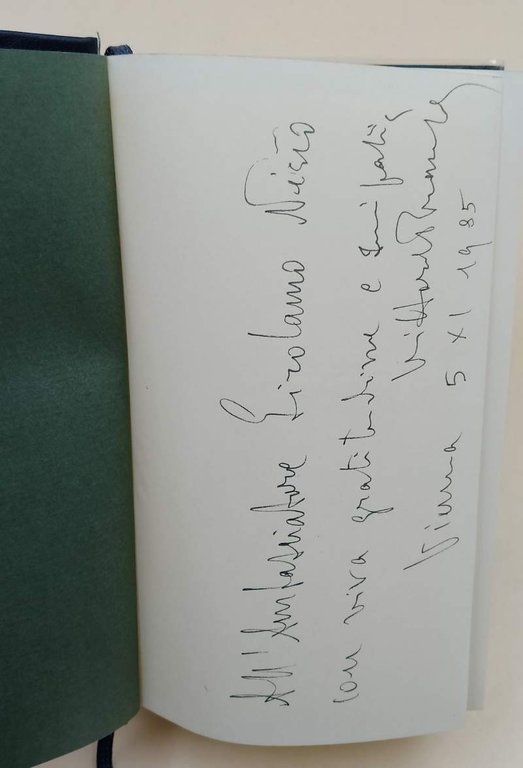 All'Ambasciatore Girolamo Nisio
con viva gratitudine e simpatia
Vittore Branca
Vienna 5 XI 1985